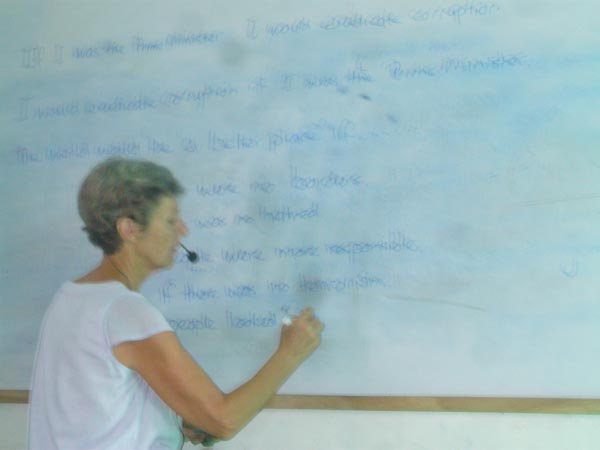 If I was the Prime Minister I would eradicate corruption
I would eradicate corruption if I was the Prime Minister.
The world would be a better place if,
were no borders.
was no hatred
were more responsible.
if there was no terrorism.
people